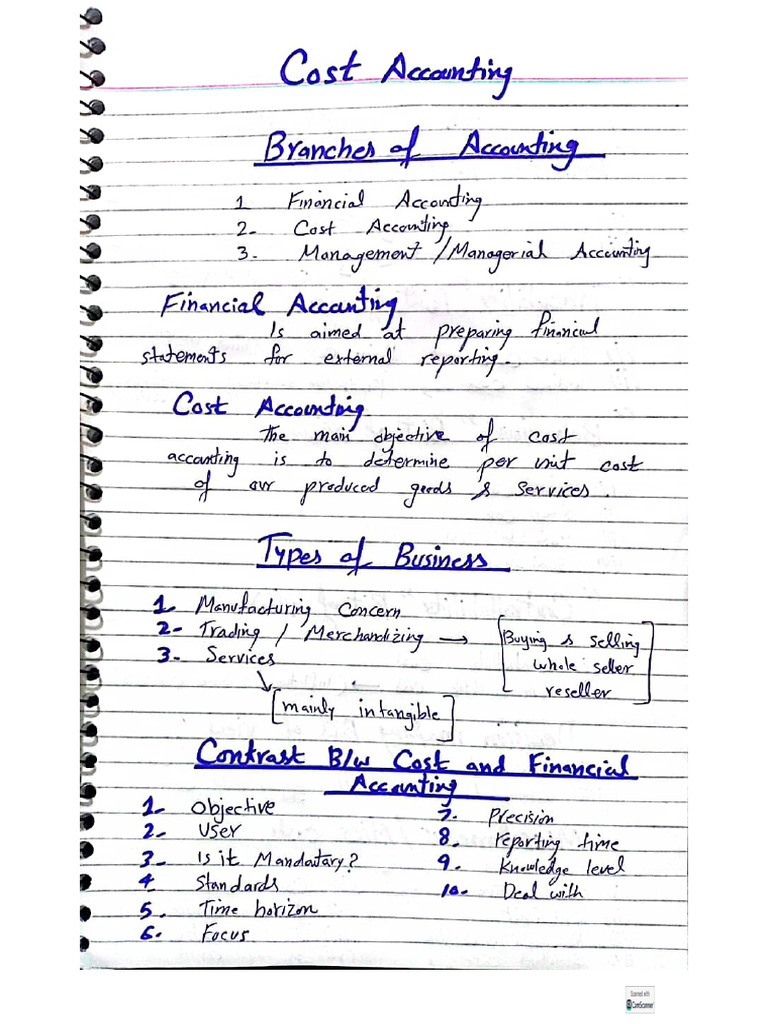 Cost Accounting
Branches of Accounting
1 Financial Accounting
2- Cost Accounting
3. Management / Managerial Accounting
Financial Accounting
Is aimed at preparing financial
statements for external reporting.
Cost Accounting
The main objective of cost
accounting is to determine per unit cost
of our produced goods & services.
Types of Business
1- Manufacturing Concern
2- Trading / Merchandizing → [Buying & selling
whole seller
reseller]
3- Services
[mainly intangible]
Contrast B/w Cost and Financial
Accounting
1- Objective
2- User
3- Is it Mandatary?
4 Standards
5. Time horizon
6- Focus
7. Precision
8. reporting time
9. Knowledge level
10. Deal with
Scanned with
CamScanner